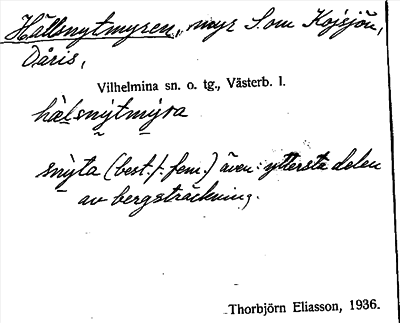 Hällsnytmyren, myr S om Kojsjön,
Dåris,
Vilhelmina sn. o. tg., Västerb. l.
hælsnỳtmýra
snỳta (best. f. fem.) även: yttersta delen
av bergsträckning.
Thorbjörn Eliasson, 1936.